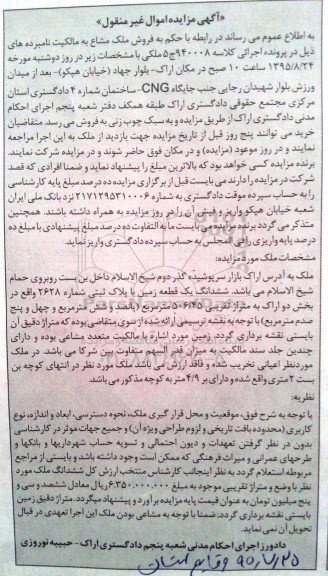 «آگهی مزایده اموال غیر منقول»
به اطلاع عموم می رساند در رابطه با حکم به فروش ملک مشاع به مالکیت نامبرده های
ذیل در پرونده اجرائی کلاسه ۹۴۰۰۰۸ج۵ ملکی با مشخصات زیر در روز دوشنبه مورخه
۱۳۹۵/۸/۲۴ ساعت ۱۰ صبح در مکان اراک- بلوار جهاد (خیابان هپکو)- بعد از میدان
ورزش بلوار شهیدان رجایی جنب جایگاه CNG- ساختمان شماره ۴ دادگستری استان
مرکزی مجتمع حقوقی دادگستری اراک طبقه همکف دفتر شعبه پنجم اجرای احکام
مدنی دادگستری اراک از طریق مزایده و به سبک چوب زنی به فروش می رسد. متقاضیان
می توانند پنج روز قبل از تاریخ مزایده جهت بازدید از ملک به این اجرا مراجعه
نمایند و در روز موعود (مزایده) و در مکان فوق حاضر شوند و در مزایده شرکت نمایند.
برنده مزایده کسی خواهد بود که بالاترین مبلغ را پیشنهاد نماید و ضمنا افرادی که قصد
شرکت در مزایده را دارند می بایست قبل از برگزاری مزایده ده درصد مبلغ پایه کارشناسی
را به حساب سپرده موقت دادگستری به شماره ۲۱۷۱۲۹۵۳۱۰۰۰۶ نزد بانک ملی ایران
شعبه خیابان هپکو واریز و فیش آن را در روز مزایده به همراه داشته باشند. همچنین
متذکر می گردد برنده مزایده می بایست ما به التفاوت ده درصد مبلغ پیشنهادی با مبلغ ده
درصد پایه واریزی را فی المجلس به حساب سپرده دادگستری واریز نماید.
مشخصات ملک مورد مزایده:
ملک به آدرس اراک بازار سرپوشیده گذر دوم شیخ الاسلام داخل بن بست روبروی حمام
شیخ الاسلام می باشد. ششدانگ یک قطعه زمین با پلاک ثبتی شماره ۲۶۲۸ واقع در
بخش دو اراک به متراژ تقریبی ۵۰۶/۴۵ مترمربع (پانصد و شش مترمربع و چهل و پنج
صدم مترمربع) با توجه به نقشه ترسیمی ارائه شده از سوی متقاضی بوده که متراژ دقیق آن
بایستی نقشه برداری گردد. زمین مورد اشاره با مالکیت متعدد مشاعی بوده و دارای
چندین جلد سند مالکیت به میزان قدر السهم متفاوت بین شرکا می باشد. در ملک
موردنظر اعیانی تخریب شده و فاقد ارزش می باشد ملک مورد نظر در انتهای کوچه بن
بست ۲ متری واقع شده و دارای بر ۴/۹ متر به کوچه مذکور می باشد.
نظریه:
با توجه به شرح فوق، موقعیت و محل قرار گیری ملک، نحوه دسترسی، ابعاد و اندازه، نوع
کاربری (محدوده بافت تاریخی و لزوم طراحی ویژه آن) و جمیع جهات موثر در کارشناسی
بدون در نظر گرفتن تعهدات و دیون احتمالی و تسویه حساب شهرداریها و بانکها و
طرحهای عمرانی و میراث فرهنگی که ممکن است وجود داشته باشد و بایستی از مراجع
مربوطه استعلام گردد به نظر اینجانب کارشناس منتخب ارزش کل ششدانگ ملک مورد
نظر با وضع و متراژ تقریبی موجود به مبلغ ۶,۳۵۰,۰۰۰,۰۰۰ ریال معادل ششصد و سی و
پنج میلیون تومان به عنوان قیمت پایه مزایده برآورد و پیشنهاد میگردد. متراژ دقیق زمین
بایستی نقشه برداری گردد. ضمنا با توجه به مشاعی بودن ملک این اجرا تعهدی در قبال
تحویل آن نمی نماید.
دادورز اجرای احکام مدنی شعبه پنجم دادگستری اراک - حبیبه نوروزی